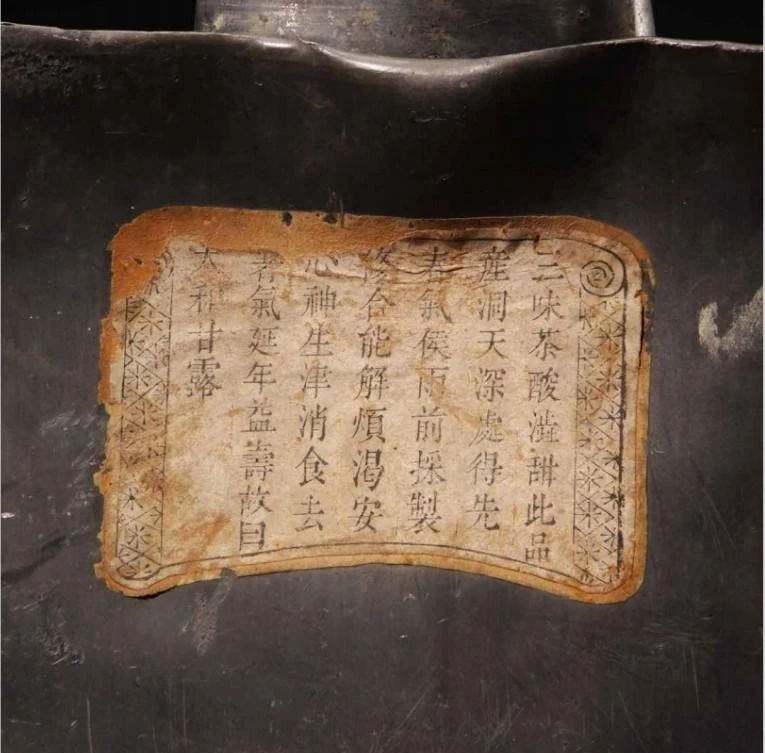 三味茶酸澁甜此品
産洞天深處得先
春氣侯雨前採製
能解煩渴安
心神生津消食去
著氣延年益壽故曰
太和甘露